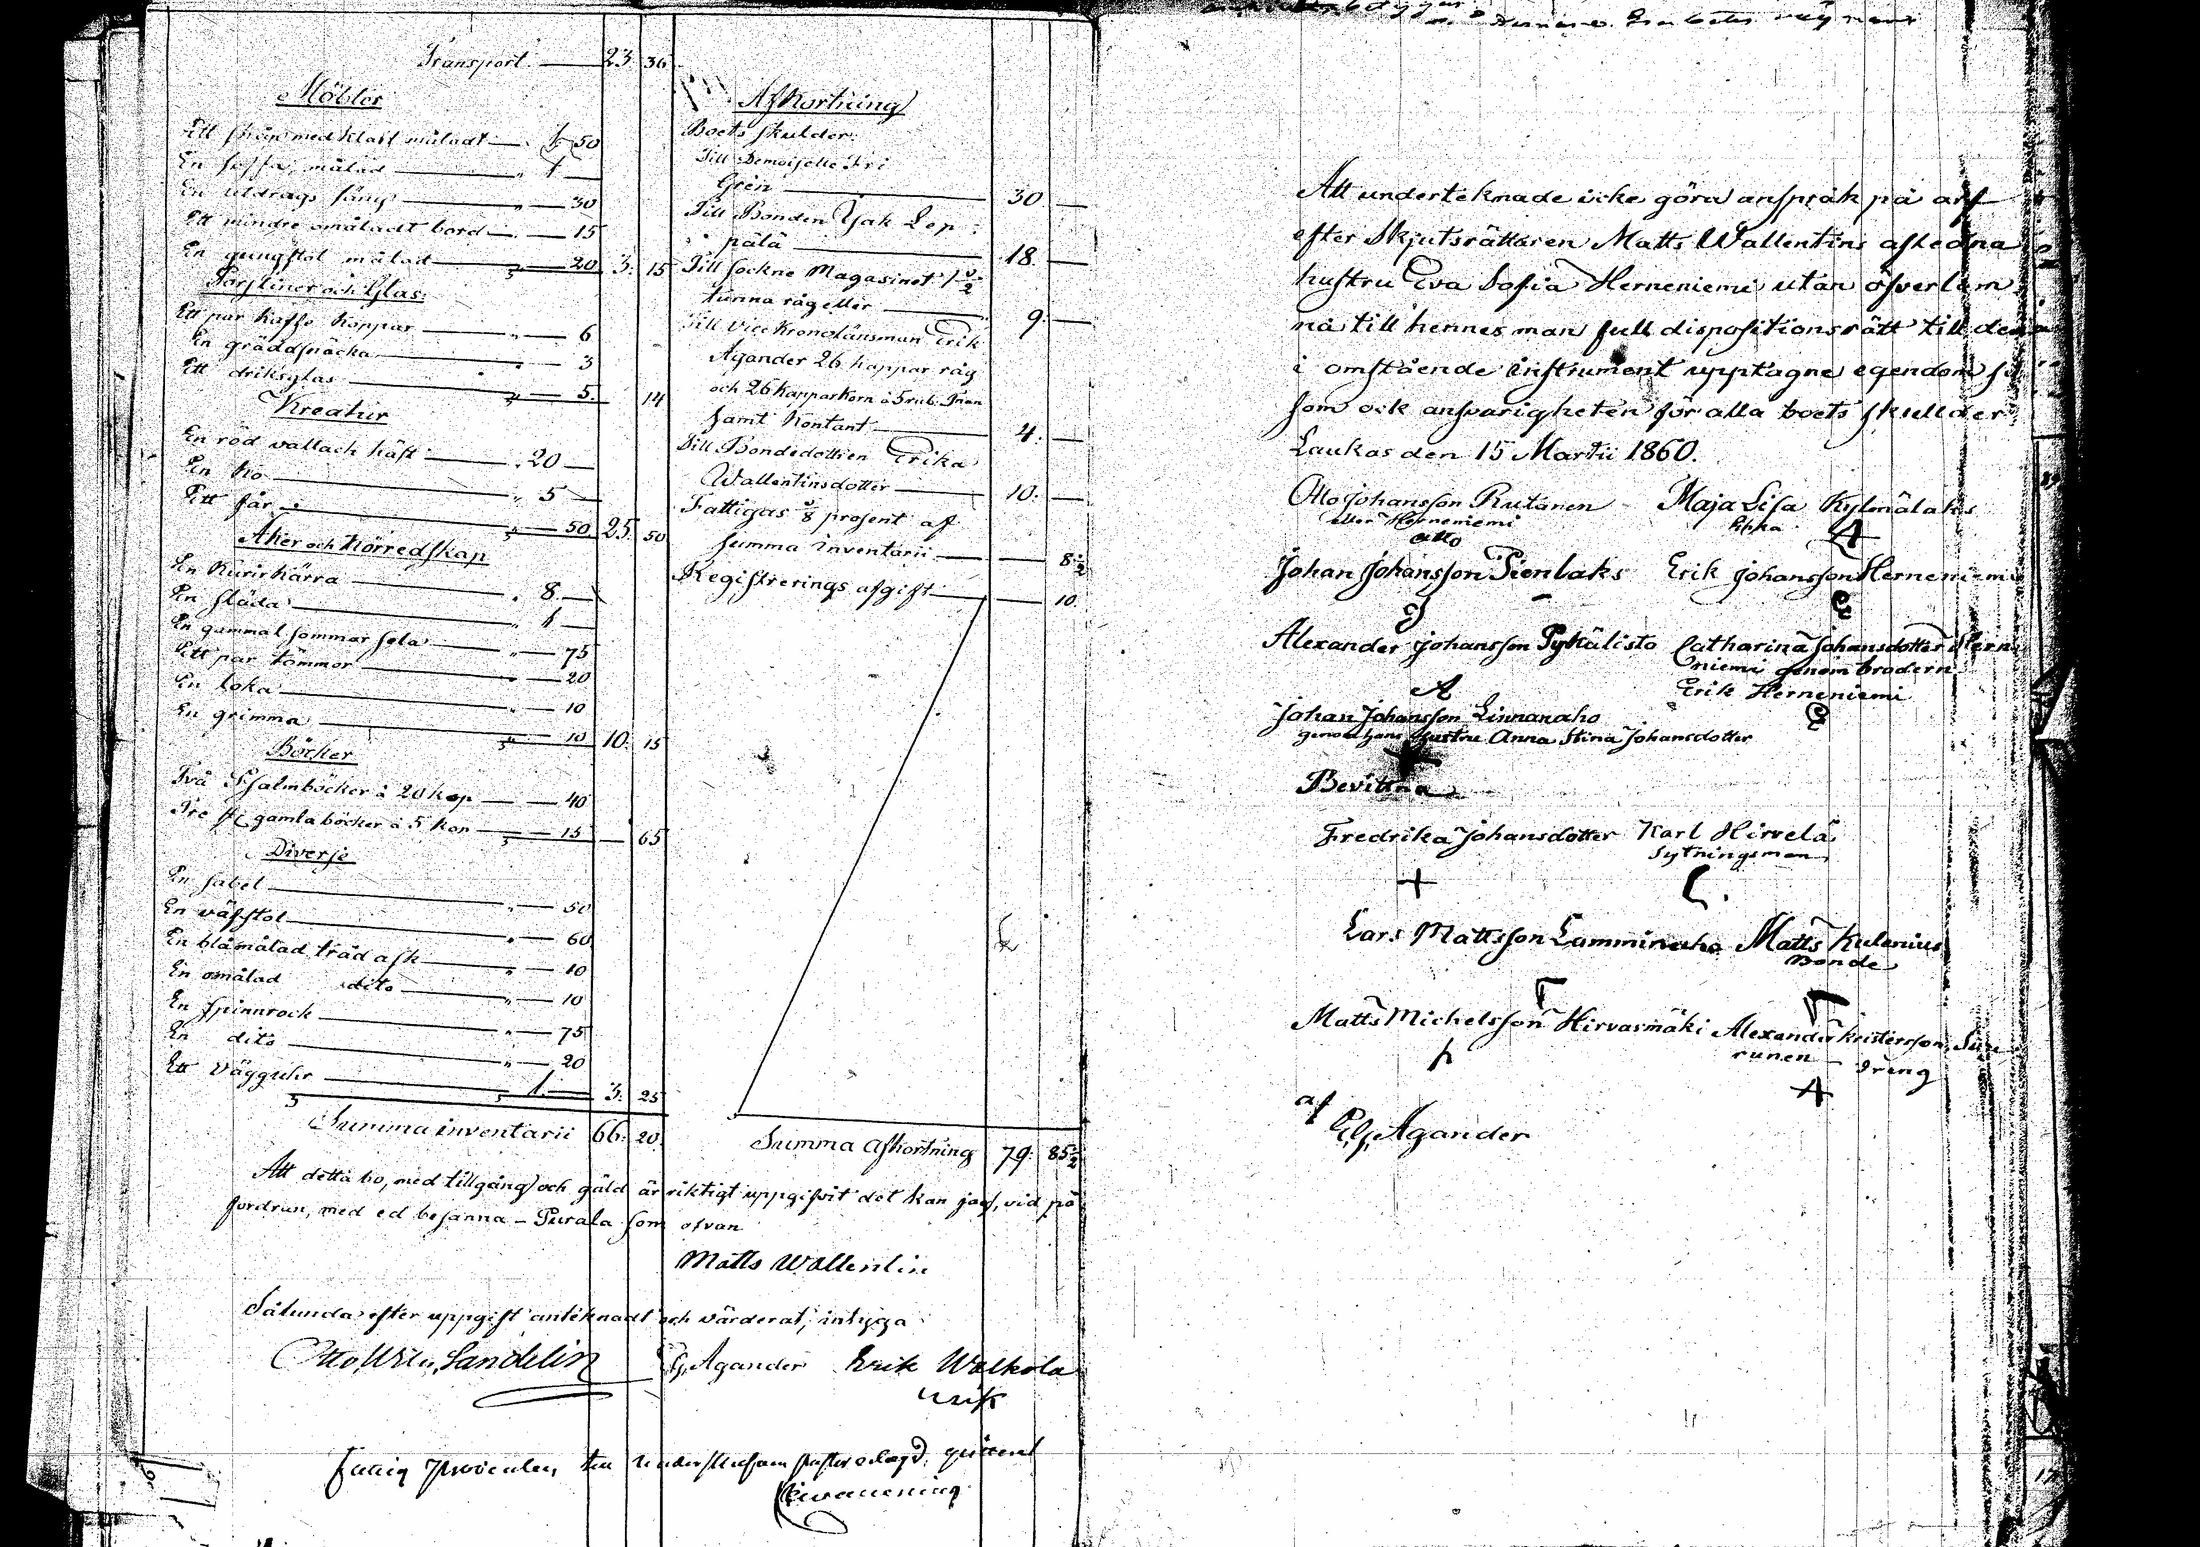 Transport. — 23. 36.
Möbler
Ett skåp med klaff måladt — 1. 50
En soffa, målad — " 1 —
En utdrags säng — " — 30
Ett mindre omåladt bord — " — 15
En gungstol målad — " — 20 3. 15
Porsliner och Glas:
Ett par kaffe koppar — " — 6
En gräddsnäcka — " — 3
Ett driksglas — " — 5. 14
Kreatur
En röd vallack häst — " 20 —
En ko — " 5 —
Ett får — " — 50 25. 50
Åker och Körredskap
En Kurirkärra — " 8. —
En släda — " 1 —
En gammal sommar sela — " — 75
Ett par tömmor — " — 20
En loka — " — 10
En grimma — " — 10 10. 15
Böcker
Två Psalmböcker à 20 kop — — 40
Tre st gamla böcker à 5 kop — " — 15 — 65
Diverse
En sabel — " — 50
En väfstol — " — 60
En blåmålad träd ask — " — 10
En omålad dito — " — 10
En spinnrock — " — 75
En dito — " — 20
Ett vägguhr — 1. — 3. 25
Summa inventarii 66. 20.
Afkortning
Boets skulder:
Till Demoiselle Fri
Gren — 30 —
Till Bonden Jak Lep
pälä — 18. —
Till sockne Magasinet 1 1/2
tunna råg eller — 9. —
Till vice Kronolänsman Erik
Agander 26 kappar råg
och 26 kappar korn à 5 rub. Tnan
samt kontant — 4. —
Till Bondedottren Erika
Wallentinsdotter — 10. —
Fattigas 1/8 prosent af
summa inventarii — — 8 1/2
Registrerings afgift — — 10.
Summa Afkortning 79. 85 1/2
Att detta bo, med tillgång och gäld är riktigt uppgifvit det kan jag, vid på
fordran, med ed besanna – Purala som ofvan
Matts Wallentin
Sålunda efter uppgift anteknadt och värderat, intyga
Otto Wilh. Sandelin E.G. Agander Erik Walkola
Fattig till
Att underteknade icke göra anspråk på arf
efter Skjutsrättaren Matts Wallentins afledna
hustru Eva Sofia Herneniemi utan öfverlem
na till hennes man full dispositionsrätt till den
i omstående instrument upptagne egendom så
som ock ansvarigheten för alla boets skullder
Laukas den 15 Martii 1860.
Otto Johansson Rutanen Maja Lisa Kylmälaks
eller Herneniemi Piga
Otto A
Johan Johansson Pienlaks Erik Johansson Herneniemi
J E
Alexander Johansson Pykälisto Catharina Johansdotter Herne
niemi genom brodern
A Erik Herneniemi
Johan Johansson Linnanaho E
genom hans hustru Anna Stina Johansdotter
Bevittna
Fredrika Johansdotter Karl Hirvelä
Sytningsman
+ C.
Lars Mattsson Lamminaho Matts Kulanius
Bonde
Matts Michelsson Hirvasmäki Alexander Kristersson Suu
runen Dreng
h A
af
E.G. Agander